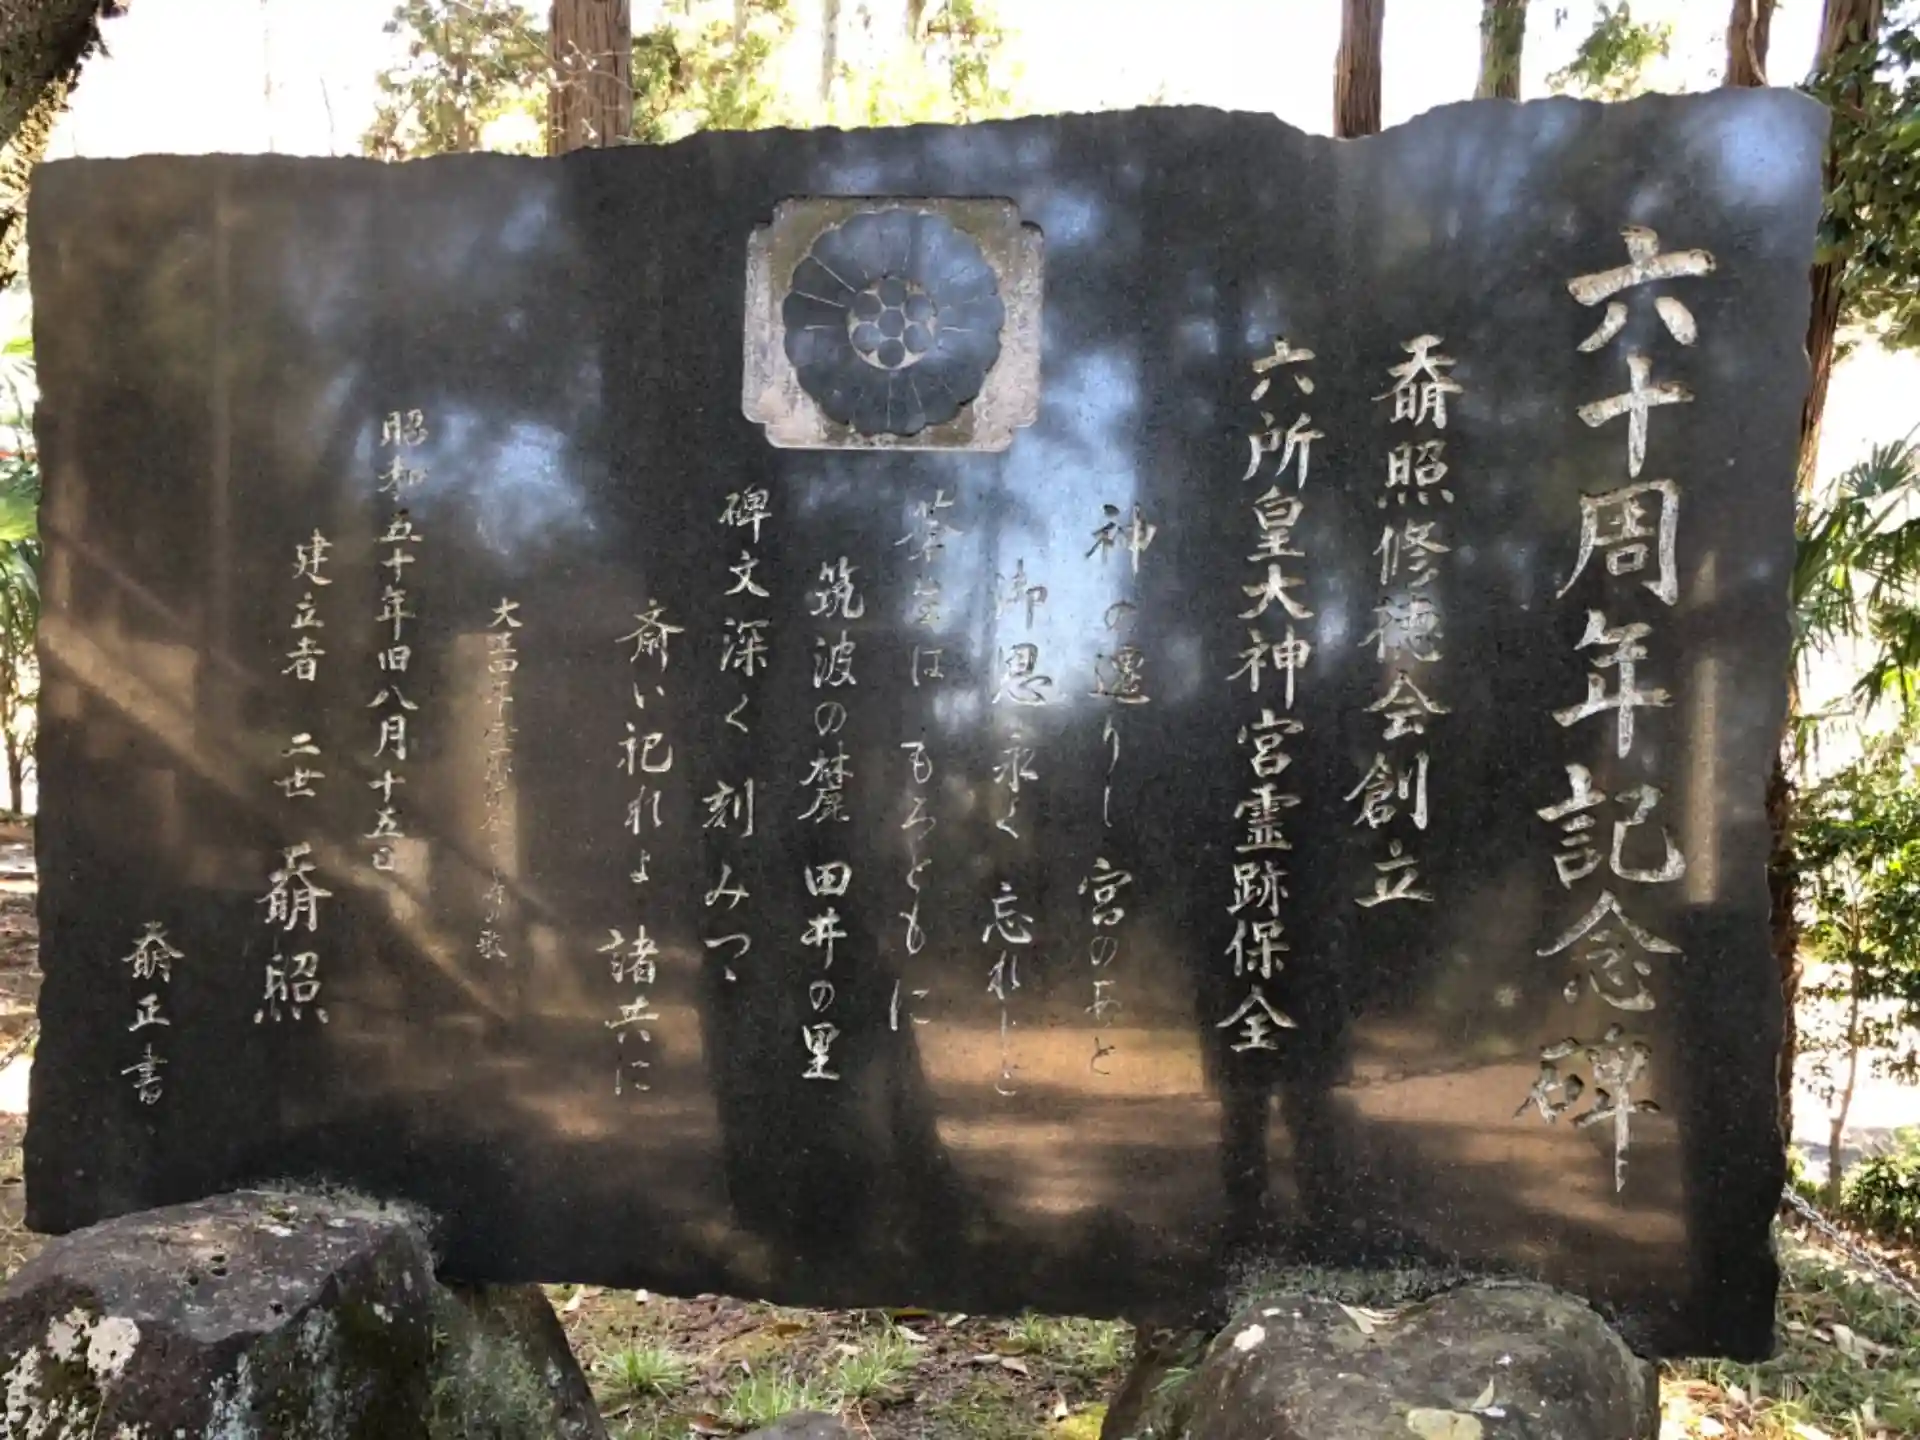 六十周年記念碑
奣照修徳会創立
六所皇大神宮霊跡保全
神の遷りし 宮のあと
御恩永く 忘れじと
は もろともに
筑波の麓 田井の里
碑文深く 刻みつゝ
斎い祀れよ 諸共に
大正四年 の歌
昭和五十年旧八月十五日
建立者 二世 奣照
奣正書